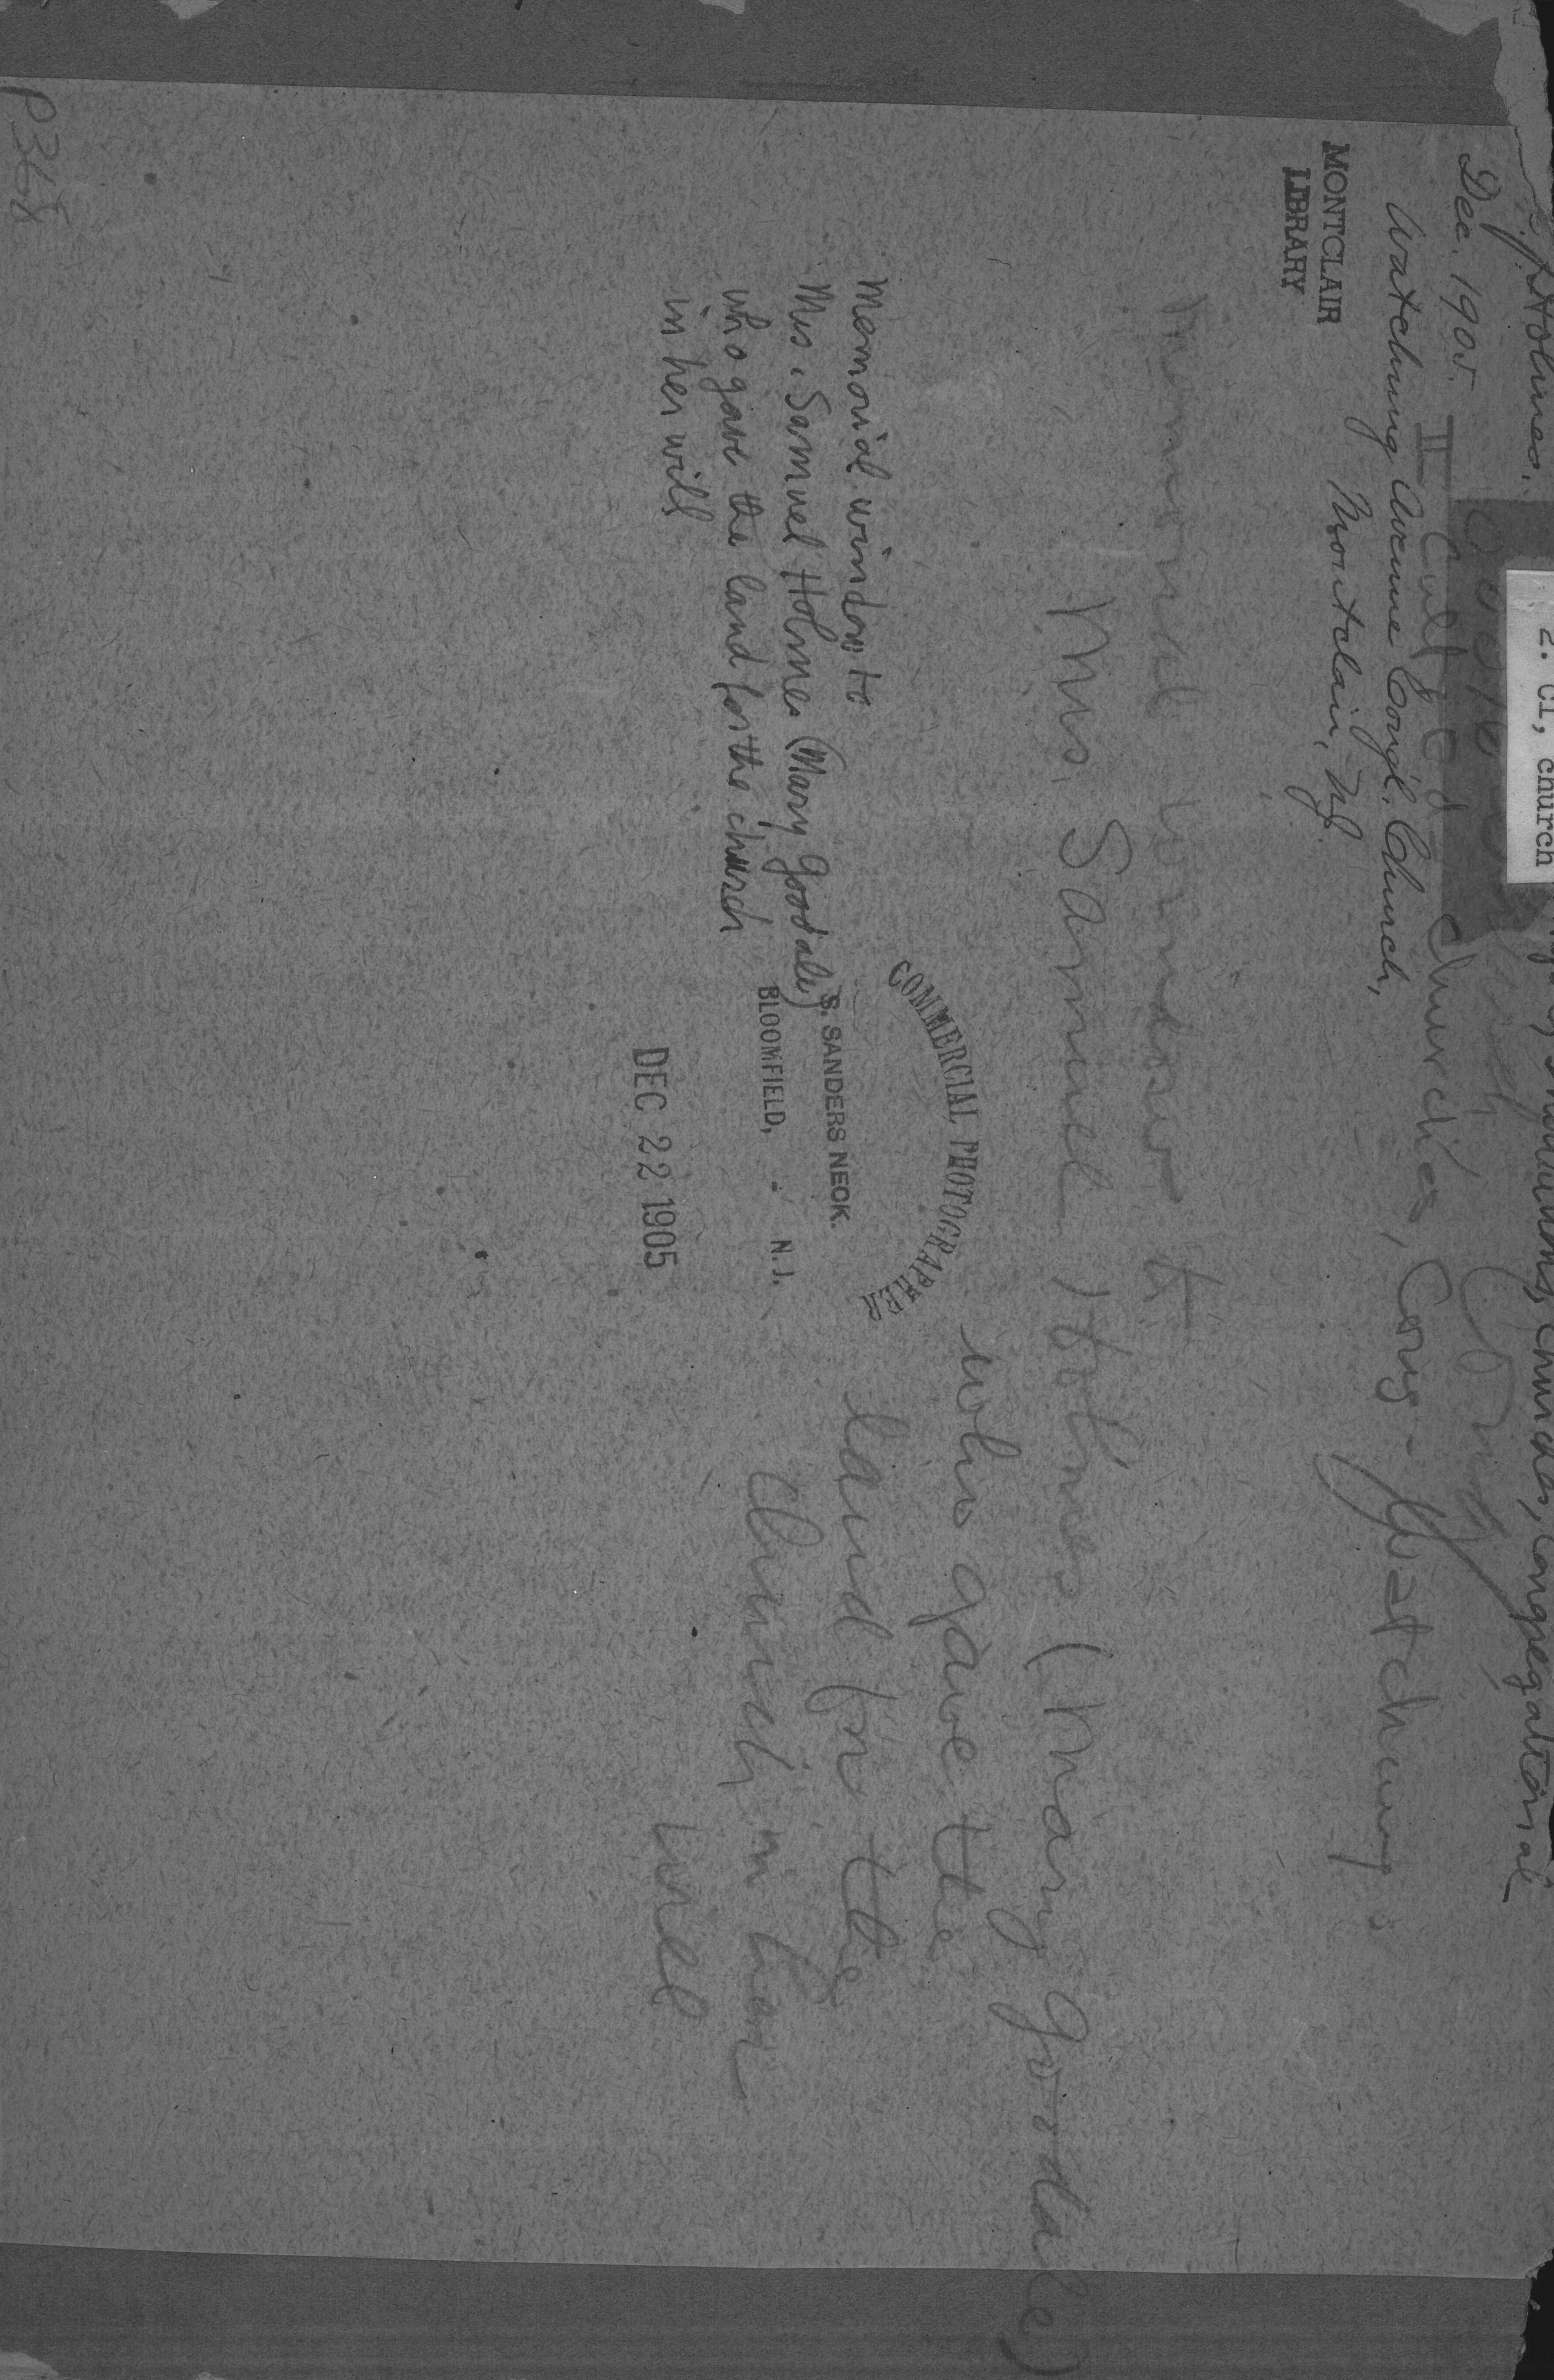 Holmes.
2. Cl, church
Churches, Congregational
Dec. 1905.
II Cult. ed. churches, Cong - Watchung
Watchung Avenue Cong'l. Church,
Montclair, NJ.
MONTCLAIR
LIBRARY
Memorial window to
Mrs. Samuel Holmes (Mary Goodale)
who gave the
land for the
church in her
will
Memorial window to
Mrs. Samuel Holmes (Mary Goodale)
who gave the land for the church
in her will
COMMERCIAL PHOTOGRAPHER
S. SANDERS NECK.
BLOOMFIELD, - N.J.
DEC 22 1905
P368